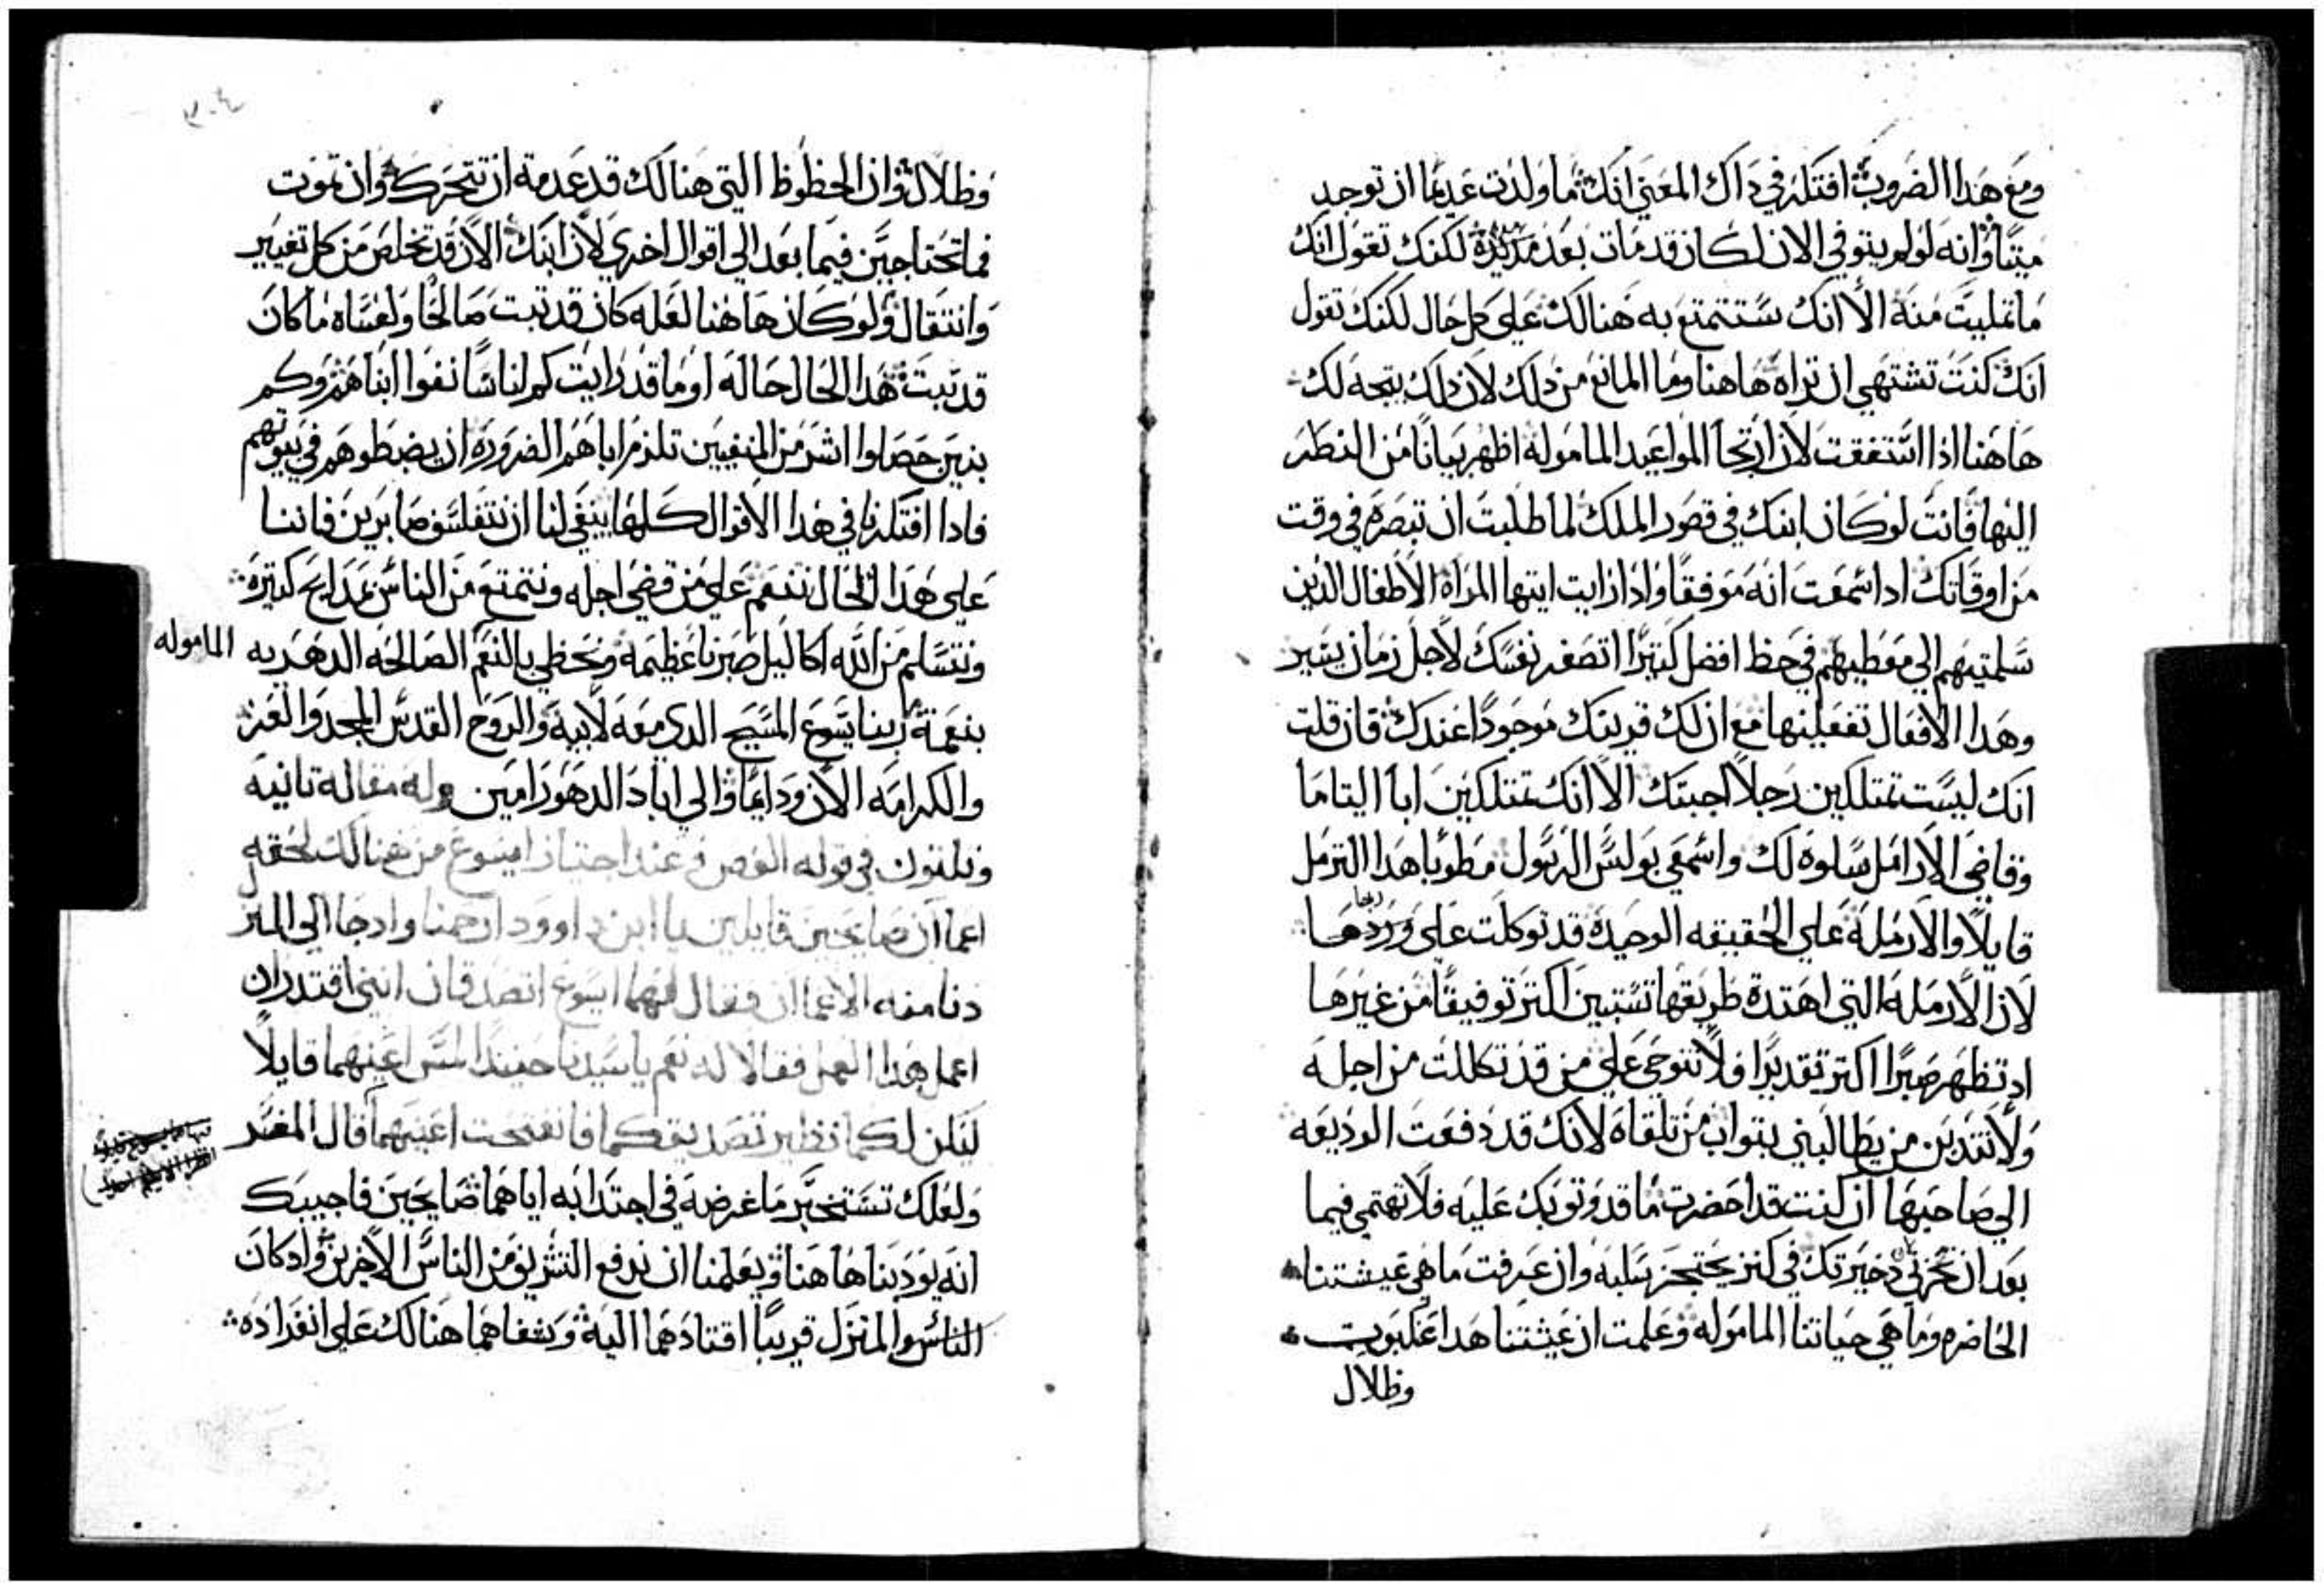 ومع هدا الضروب افتكر في داك المعني انك ما ولدت عديما ان توجد
ميتا وانه لو لم يتوفي الان لكان قد مات بعد مديدة لكنك تقول انك
ما تمليت منه الا انك ستتمتع به هنالك علي كل حال لكنك تقول
انك كنت تشتهي ان تراه هاهنا وما المانع من دلك لان دلك يتجه لك
هاهنا اذا استفقت لان ارتجا المواعيد المامولة اظهر بيانا من النظر
اليها فانت لو كان ابنك في قصور الملك لما طلبت ان تبصره في وقت
من اوقاتك ادا سمعت انه موفقا وادا رايت ايتها المراه الاطفال الذين
سلمتيهم الي معطيهم في حظ افضل كتيرا اتصغر نفسك لاجل زمان يسير
وهدا الافعال تفعلينها مع ان لك قرينك موجودا عندك فان قلت
انك ليست تمتلكين رجلا اجبتك الا انك تمتلكين ابا اليتاما
وقاضي الارامل سلوة لك واسمعي بولس الرسول مطوبا هدا الترمل
قايلا والارملة علي الحقيقه الوحيدة قد توكلت علي
لان الارمله التي اهتدة طريقها تستبين اكتر توفيقا من غيرها
اد تظهر صبرا اكتر تقديرا فلا تنوحي علي من قد تكللت من اجله
ولا من يطالبني بتواب من تلقاه لانك قد دفعت الوديعه
الي صاحبها ان كنت قد احضرت ما قد وتو بك عليه فلا تهتمي فيما
بعد ان تحزني دخيرتك في كنز يحتجز سلبه وان عرفت ما هي عيشتنا
الحاضره وما هي حياتنا الماموله وعلمت ان عيشتنا هدا عنكبوت
وظلال
وظلال وان الحظوظ التي هنالك قد عدمة ان تتحرك وان تموت
فما تحتاجين فيما بعد الي اقوال اخري لان ابنك الان قد تخلص من كل تغيير
وانتقال ولو كان هاهنا لعله كان قد تبت صالحا ولعساه ما كان
قد تبت هدا الحال حاله او ما قد رايت كم اناسا نفوا ابناهم وكم
بنين حصلوا اشر من المنفيين تلزم اباهم الضرورة ان يضبطوهم في بيوتهم
فادا افتكرنا في هدا الاقوال كلها ينبغي لنا ان نتفلسف صابرين فاننا
علي هدا الحال ننعم علي من قضي اجله ونتمتع من الناس بمدايح كتيرة
ونتسلم من الله اكاليل صبرنا عظيمه ونحظي بالنعم الصالحه الدهريه الماموله
بنعمة ربنا يسوع المسيح الدي معه لابيه والروح القدس المجد والعز
والكرامه الان ودايما والي اباد الدهور امين وله مقاله تانيه
وتلتون في قوله الفص وعند اجتياز ايسوع من هنالك لحقه
اعماان صايحين قايلين يا ابن داوود ارحمنا واد جا الي المنزل
دنا منه الاعماان فقال لهما ايسوع اتصدقان انني اقتدر ان
اعمل هدا العمل فقالا له نعم يا سيدنا حينيدا لمس اعينهما قايلا
ليكن لكما نظير تصديقكما فانفتحت اعينهما قال المفسر
ولعلك تستخبر ما غرضه في اجتدابه اياهما صايحين فاجيبك
انه يودبنا هاهنا ويعلمنا ان ندفع التشريف من الناس الاخرين واد كان
الناس والمنزل قريبا اقتادهما اليه وشفاهما هنالك علي انفراده